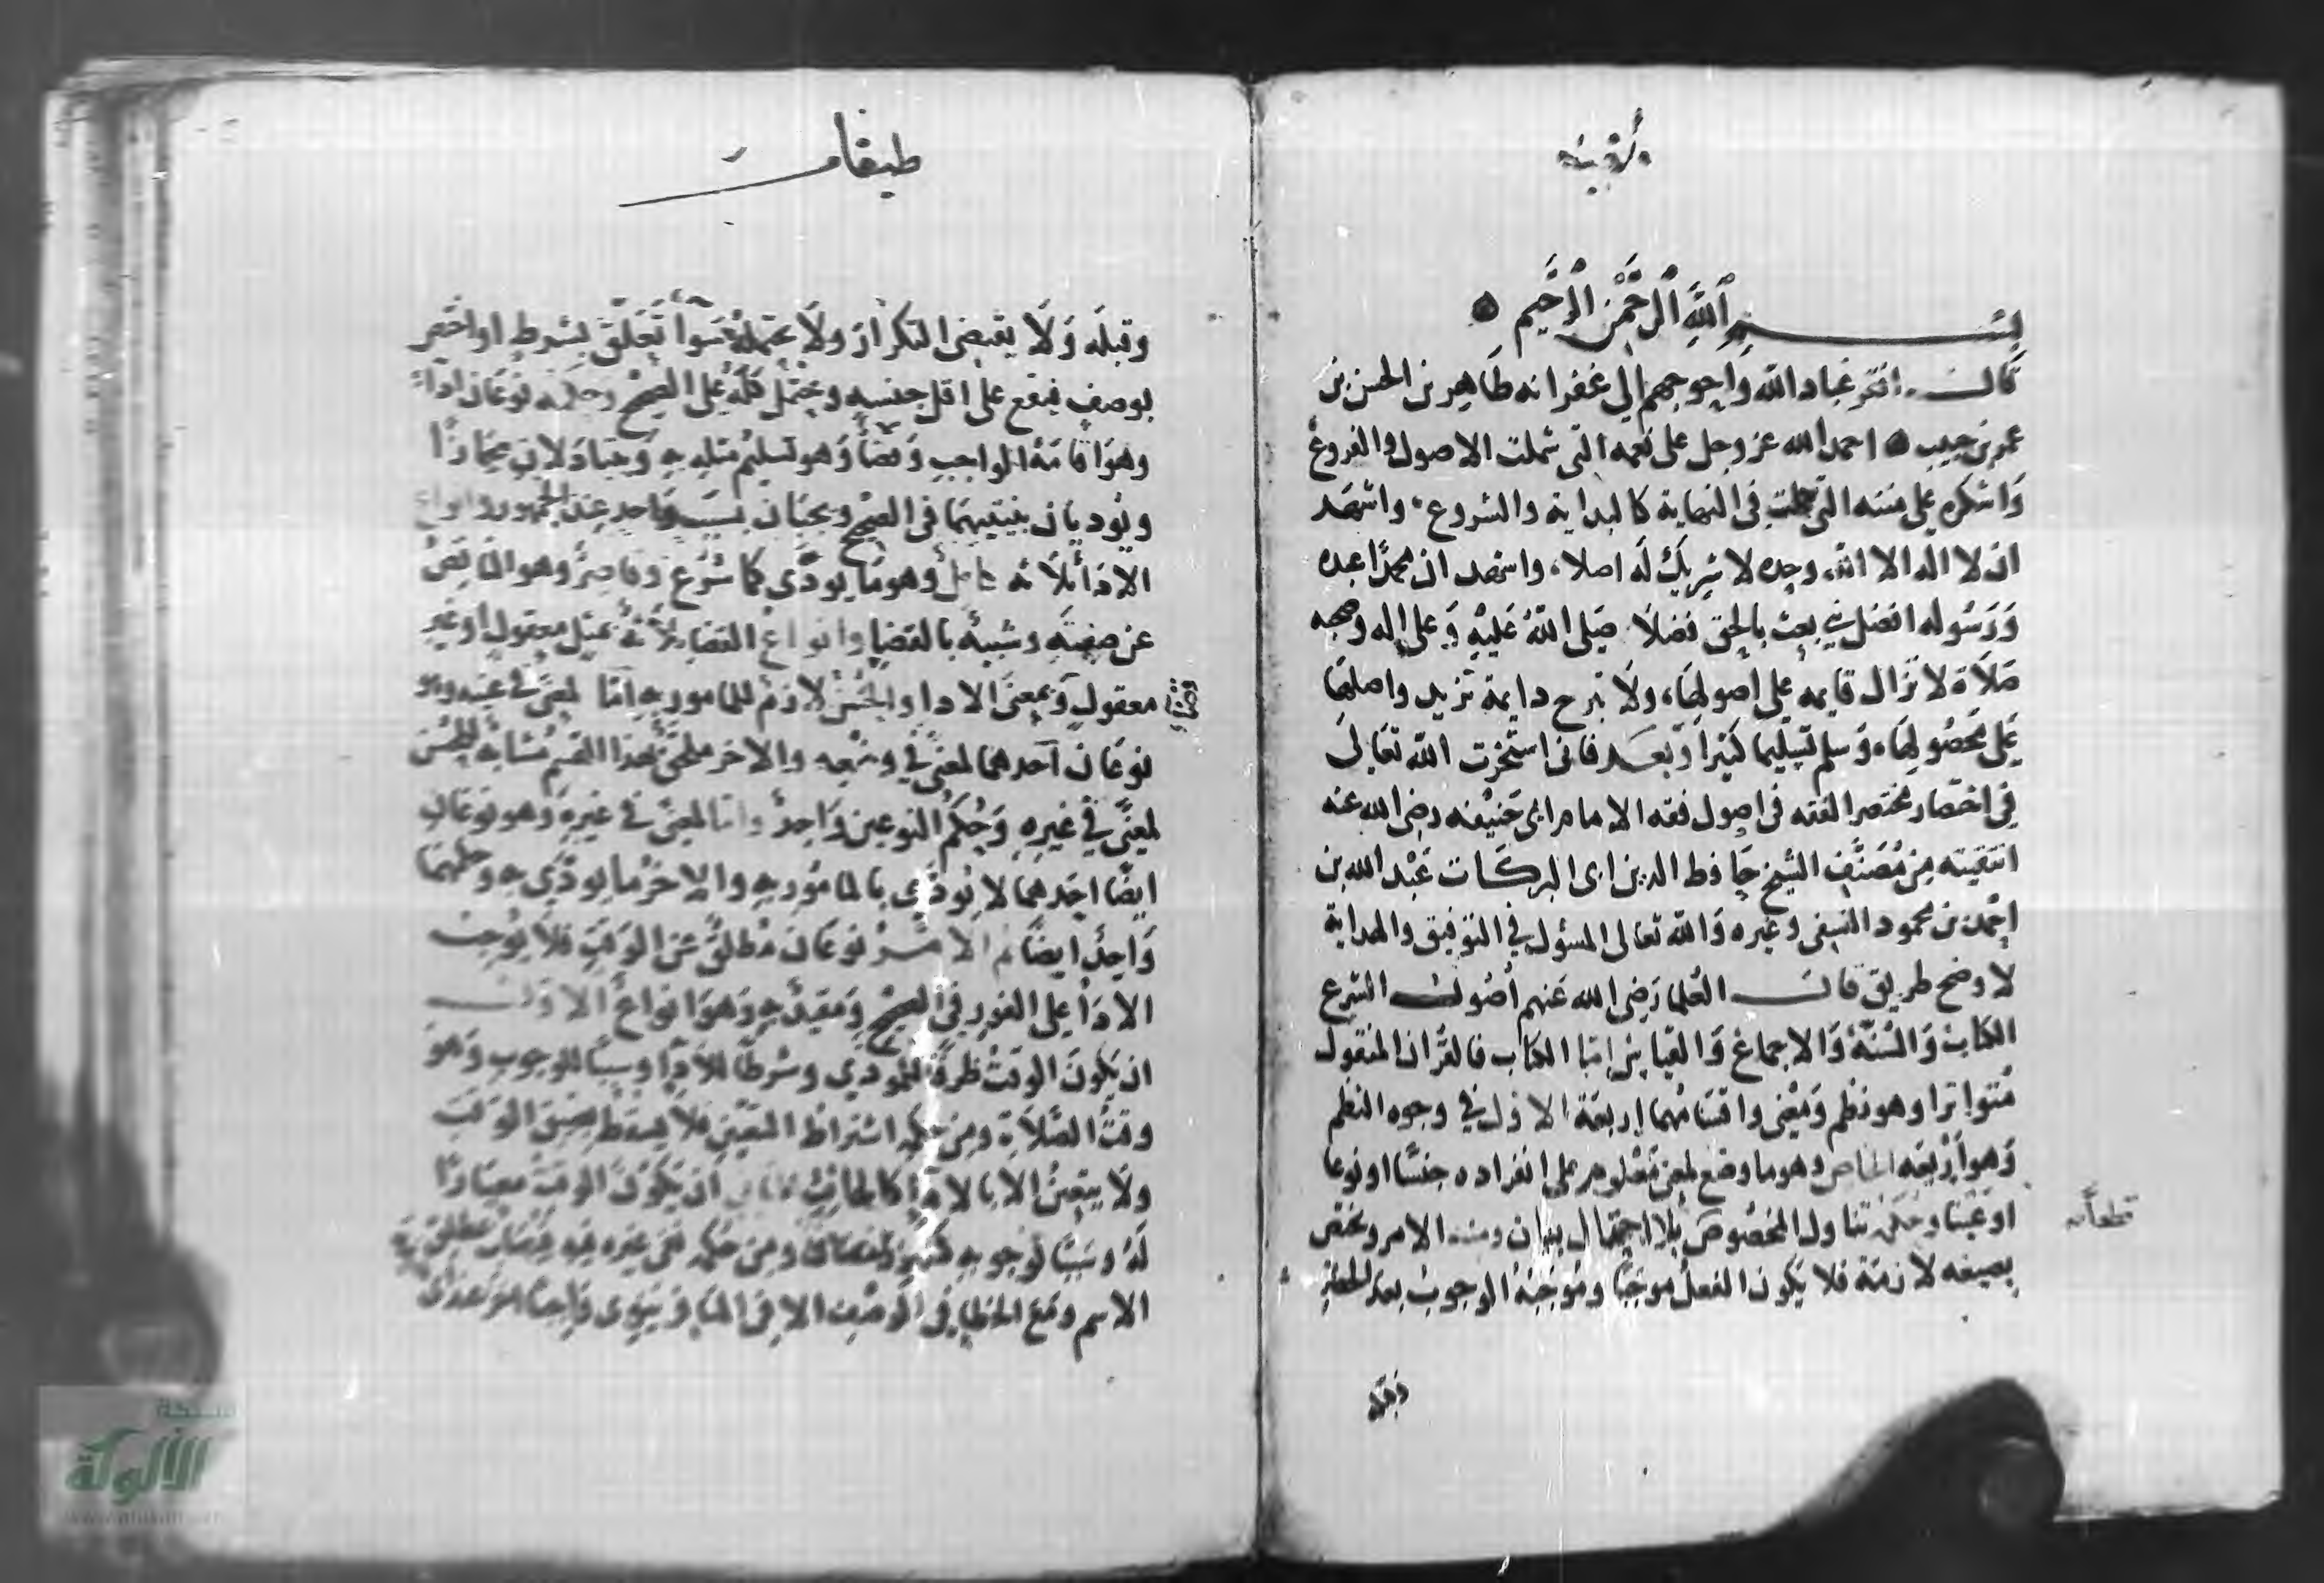 بسم الله الرحمن الرحيم
قال افقر عباد الله واحوجهم الى غفرانه طاهر بن الحسن بن
عمر بن حبيب احمد الله عز وجل على نعمه التى شملت الاصول والفروع
واشكره على مننه التى جلت فى النهاية كالبداية والشروع واشهد
ان لا اله الا الله وحده لا شريك له اصلا، واشهد ان محمدا عبده
ورسوله افضل نبي بعث بالحق فضلا صلى الله عليه وعلى اله وصحبه
صلاة لا تزال قايمه على اصولها، ولا تبرح دايمة تزيد واصلها
على محصولها، وسلم تسليما كثيرا وبعد فانى استخرت الله تعالى
فى اختصار مختصر الفقه فى اصول فقه الامام ابى حنيفه رضى الله عنه
انتقيته من مصنف الشيخ حافظ الدين ابى البركات عبد الله بن
احمد بن محمود النسفى وغيره والله تعالى المسؤل في التوفيق والهداية
لاوضح طريق قالت العلما رضى الله عنهم أصول الشرع
الكتاب والسنة والاجماع والقياس اما الكتاب فالقران المنقول
متواترا وهو نظم ومعنى واقسامهما اربعة الاول في وجوه النظم
وهو اربعه الخاص وهو ما وضع لمعنى معلوم على انفراده جنسا او نوعا
او عينا وحكمه تناول المخصوص بلا احتمال بيان ومنه الامر ويختص
بصيغه لازمة فلا يكون الفعل موجبا وموجبه الوجوب بعد الحظر
قطعا
وقبله
طيفات
وقبله ولا يقتضى التكرار ولا يحتمله سوا تعلق بشرط او اختص
بوصف فيقع على اقل جنسه ويحتمل كله على الصحيح وحكمه نوعان اداء
وهو اقامة الواجب وقضا وهو تسليم مثله به ويتبادلان مجازا
ويوديان بنيتيهما فى الصحيح ويجبان بسبب واحد عند الجمهور وانواع
الاداء ثلاثه كامل وهو ما يودى كما شرع وقاصر وهو الناقص
عن صفته وشبيه بالقضا وانواع القضا ثلاثة بمثل معقول او غير
معقول وبمعنى الادا والحسن لازم للمامور به اما لمعنى في عينه وهو
نوعان احدهما لمعنى في وضعه والاخر ملحق بهذا القسم مشابه للحسن
لمعنى في غيره وحكم النوعين واحد واما لمعنى في غيره وهو نوعان
ايضا احدهما لا يودى بالمامور به والاخر ما يودى به وحكمهما
واحد ايضا ثم الامر نوعان مطلق عن الوقت فلا يوجب
الادا على الفور في الصحيح ومقيد به وهو انواع الاول
ان يكون الوقت ظرفا للمودى وشرطا للادا وسببا للوجوب وهو
وقت الصلاة ومن حكمه اشتراط التعيين فلا يسقط بضيق الوقت
ولا يتعين الا بالادا كالحانث الثانى ان يكون الوقت معيارا
له وسببا لوجوبه كشهر رمضان ومن حكمه نفى غيره فيه فيصاب بمطلق
الاسم ومع الخطا فى الوصف الا فى المسافر ينوى واجبا اخر عند ابى